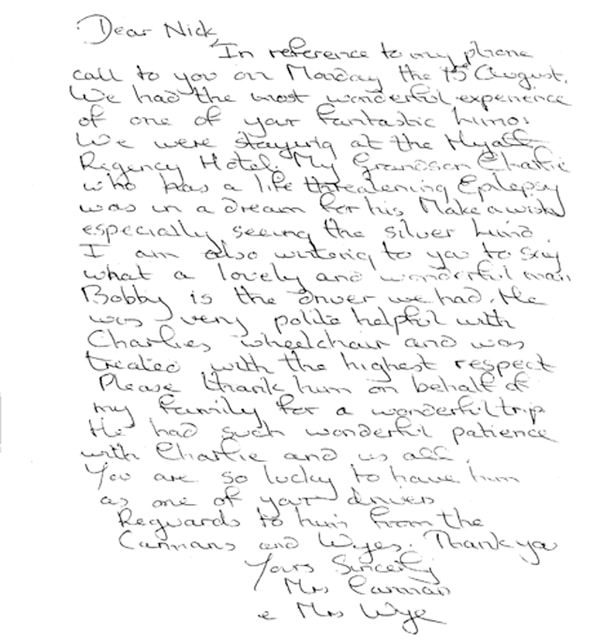 Dear Nick,
In reference to my phone
call to you on Monday the 15 August.
We had the most wonderful experience
of one of your fantastic limos
We were staying at the Hyatt
Regency Hotel. My Grandson Charlie
who has a life threatening Epilepsy
was in a dream for his Make a wish
especially seeing the silver limo.
I am also writing to you to say
what a lovely and wonderful man
Bobby is the driver we had. He
was very polite helpful with
Charlies wheelchair and was
treated with the highest respect
Please thank him on behalf of
my family for a wonderful trip
He had such wonderful patience
with Charlie and us all.
You are so lucky to have him
as one of your drivers
Reguards to him from the
Cannans and Wyes. Thank you
Yours Sincerly
Mrs Cannan
& Mrs Wye